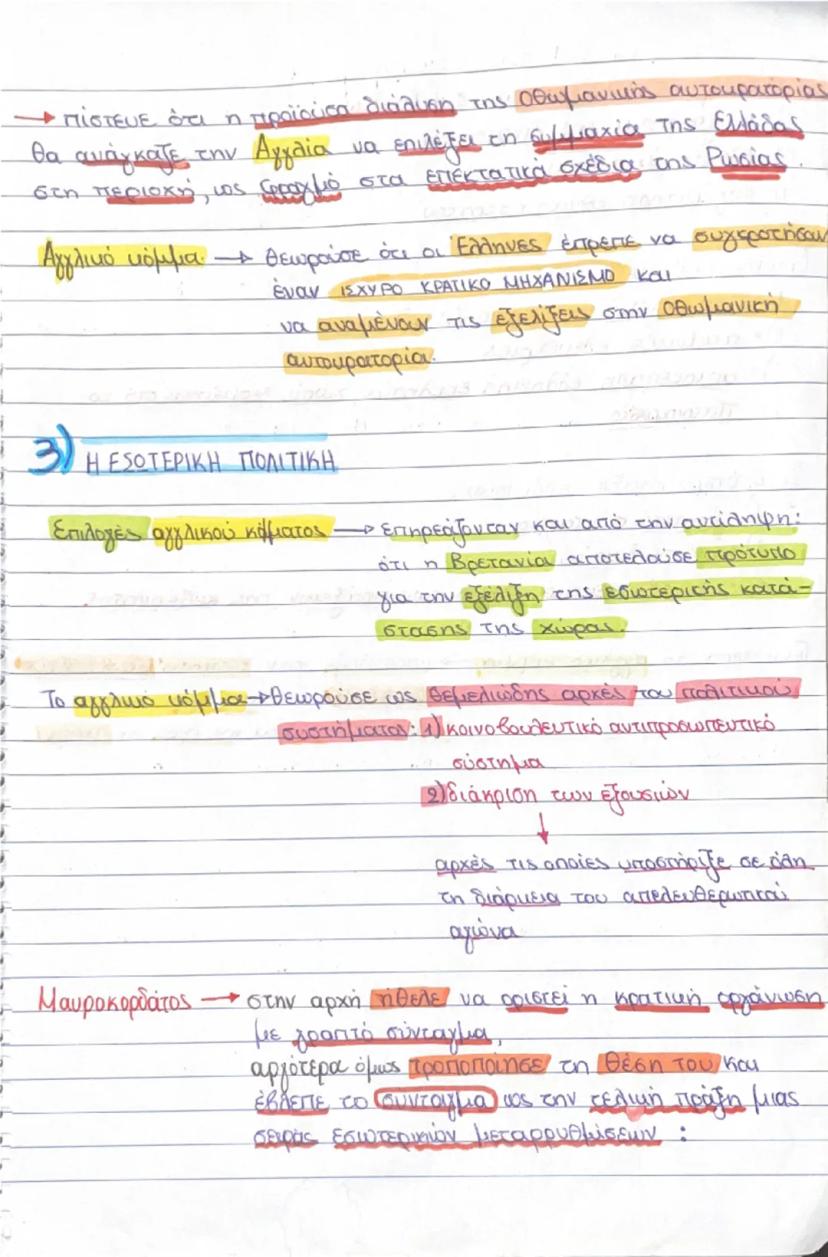 → πίστευε ότι η προϊούσα διάλυση της Οθωμανικής αυτοκρατορίας
θα ανάγκαζε την Αγγλία να επιλέξει τη συμμαχία της Ελλάδας
στη περιοχή, ως φραγμό στα επεκτατικά σχέδια της Ρωσίας.
Αγγλικό κόμμα → θεωρούσε ότι οι Έλληνες έπρεπε να συγκροτήσουν
έναν ΙΣΧΥΡΟ ΚΡΑΤΙΚΟ ΜΗΧΑΝΙΣΜΟ και
να αναμένουν τις εξελίξεις στην Οθωμανική
αυτοκρατορία.
3) Η ΕΣΩΤΕΡΙΚΗ ΠΟΛΙΤΙΚΗ
Επιλογές αγγλικού κόμματος → επηρεάζονταν και από την αντίληψη:
ότι η Βρετανία αποτελούσε πρότυπο
για την εξέλιξη της εσωτερικής κατά-
στασης της χώρας.
Το αγγλικό κόμμα → θεωρούσε ως θεμελιώδης αρχές του πολιτικού
συστήματος: 1) κοινοβουλευτικό αντιπροσωπευτικό
σύστημα
2) διάκριση των εξουσιών
↓
αρχές τις οποίες υποστήριξε σε όλη
τη διάρκεια του απελευθερωτικού
αγώνα
Μαυροκορδάτος → στην αρχή ήθελε να οριστεί η κρατική οργάνωση
με γραπτό σύνταγμα,
αργότερα όμως τροποποίησε τη θέση του και
έβλεπε το σύνταγμα ως την τελική πράξη μιας
σειράς εσωτερικών μεταρρυθμίσεων :